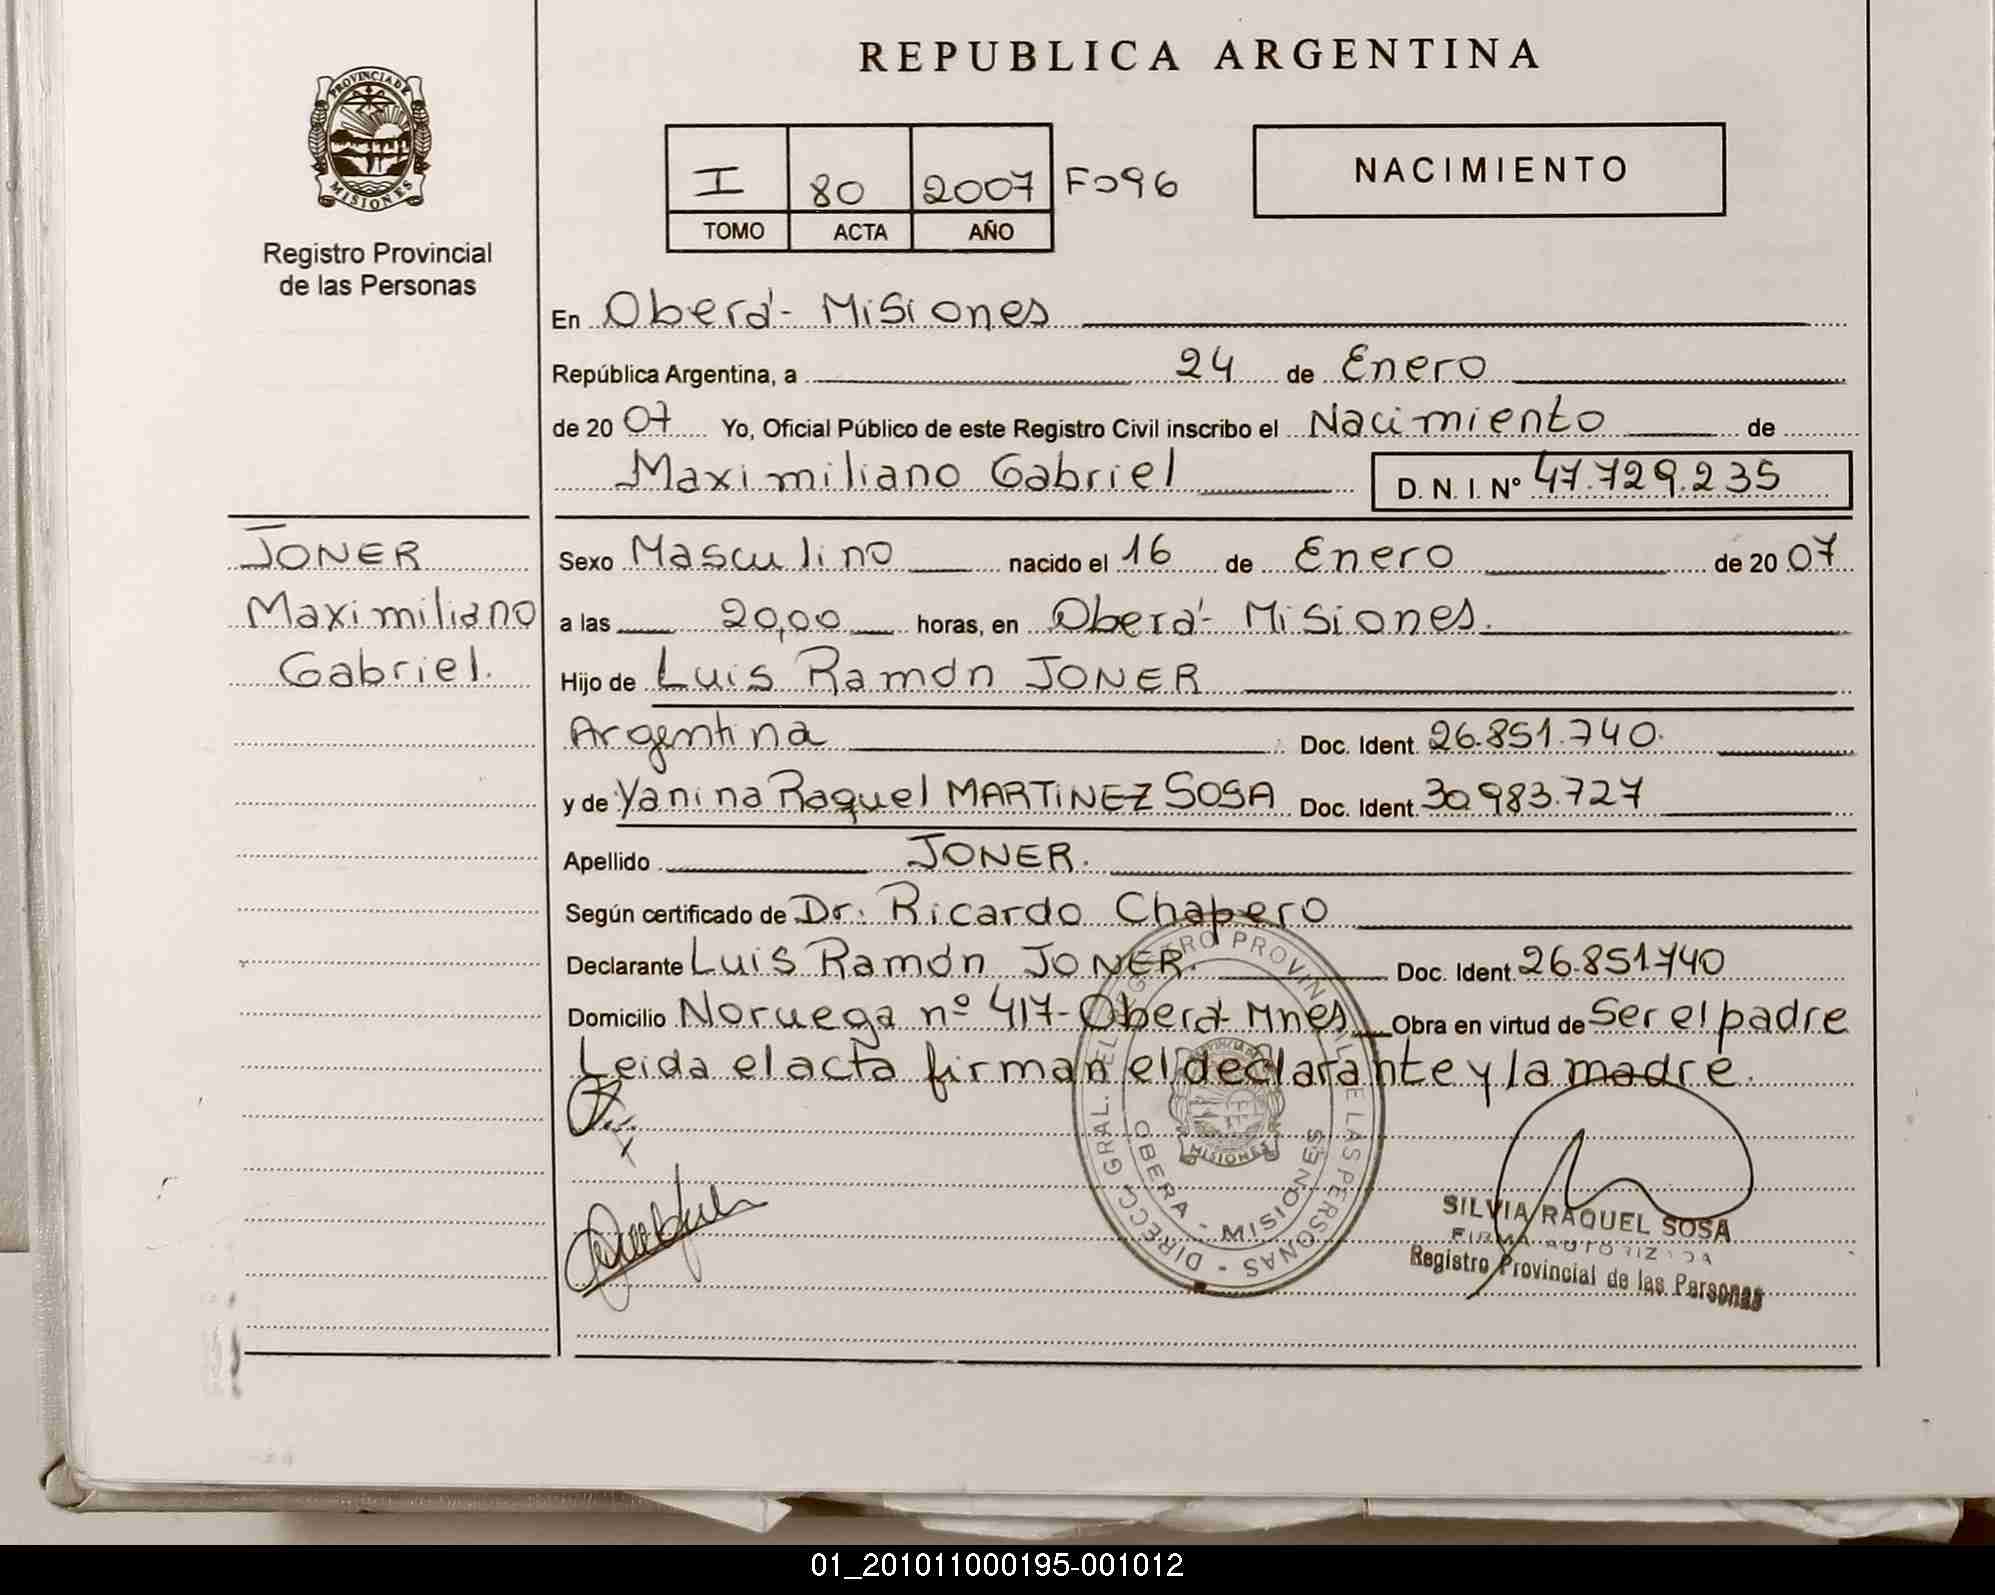 REPUBLICA ARGENTINA
PROVINCIA DE
MISIONES
Registro Provincial
de las Personas
I 80 2007 F096
TOMO ACTA AÑO
NACIMIENTO
En Oberá - Misiones
República Argentina, a 24 de Enero
de 2007 Yo, Oficial Público de este Registro Civil inscribo el Nacimiento de
Maximiliano Gabriel D. N. I. Nº 47.729.235
JONER
Maximiliano
Gabriel.
Sexo Masculino nacido el 16 de Enero de 2007
a las 20,00 horas, en Oberá - Misiones.
Hijo de Luis Ramón JONER
Argentina Doc. Ident. 26.851.740.
y de Yanina Raquel MARTINEZ SOSA Doc. Ident. 30.983.727
Apellido JONER.
Según certificado de Dr. Ricardo Chapero
Declarante Luis Ramón JONER. Doc. Ident. 26.851.740
Domicilio Noruega nº 417 - Oberá - Mnes Obra en virtud de Ser el padre
Leida el acta firman el declarante y la madre.
DIRECC. GRAL. EL REGISTRO PROVINCIAL DE LAS PERSONAS -
OBERA - MISIONES
PROVINCIA DE
MISIONES
SILVIA RAQUEL SOSA
FIRMA AUTORIZADA
Registro Provincial de las Personas
01_201011000195-001012